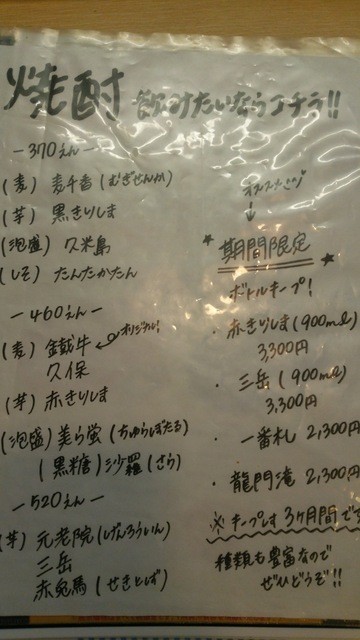 焼酎 飲みたいならコチラ!!
-370えん-
(麦) 麦千香(むぎせんか)
(芋) 黒きりしま
(泡盛) 久米島
(しそ) たんたかたん
-460えん-
(麦) 金鐵牛 オリジナル!
久保
(芋) 赤きりしま
(泡盛) 美ら蛍(ちゅらじまほたる)
(黒糖) 沙羅(さら)
-520えん-
(芋) 元老院(げんろういん)
三岳
赤兎馬(せきとば)
オススメ
↓
★期間限定★
ボトルキープ!
・赤きりしま(900ml)
3,300円
・三岳(900ml)
3,300円
・一番札 2,300円
・龍門滝 2,300円
※キープは3ヶ月間です
種類も豊富なので
ぜひどうぞ!!